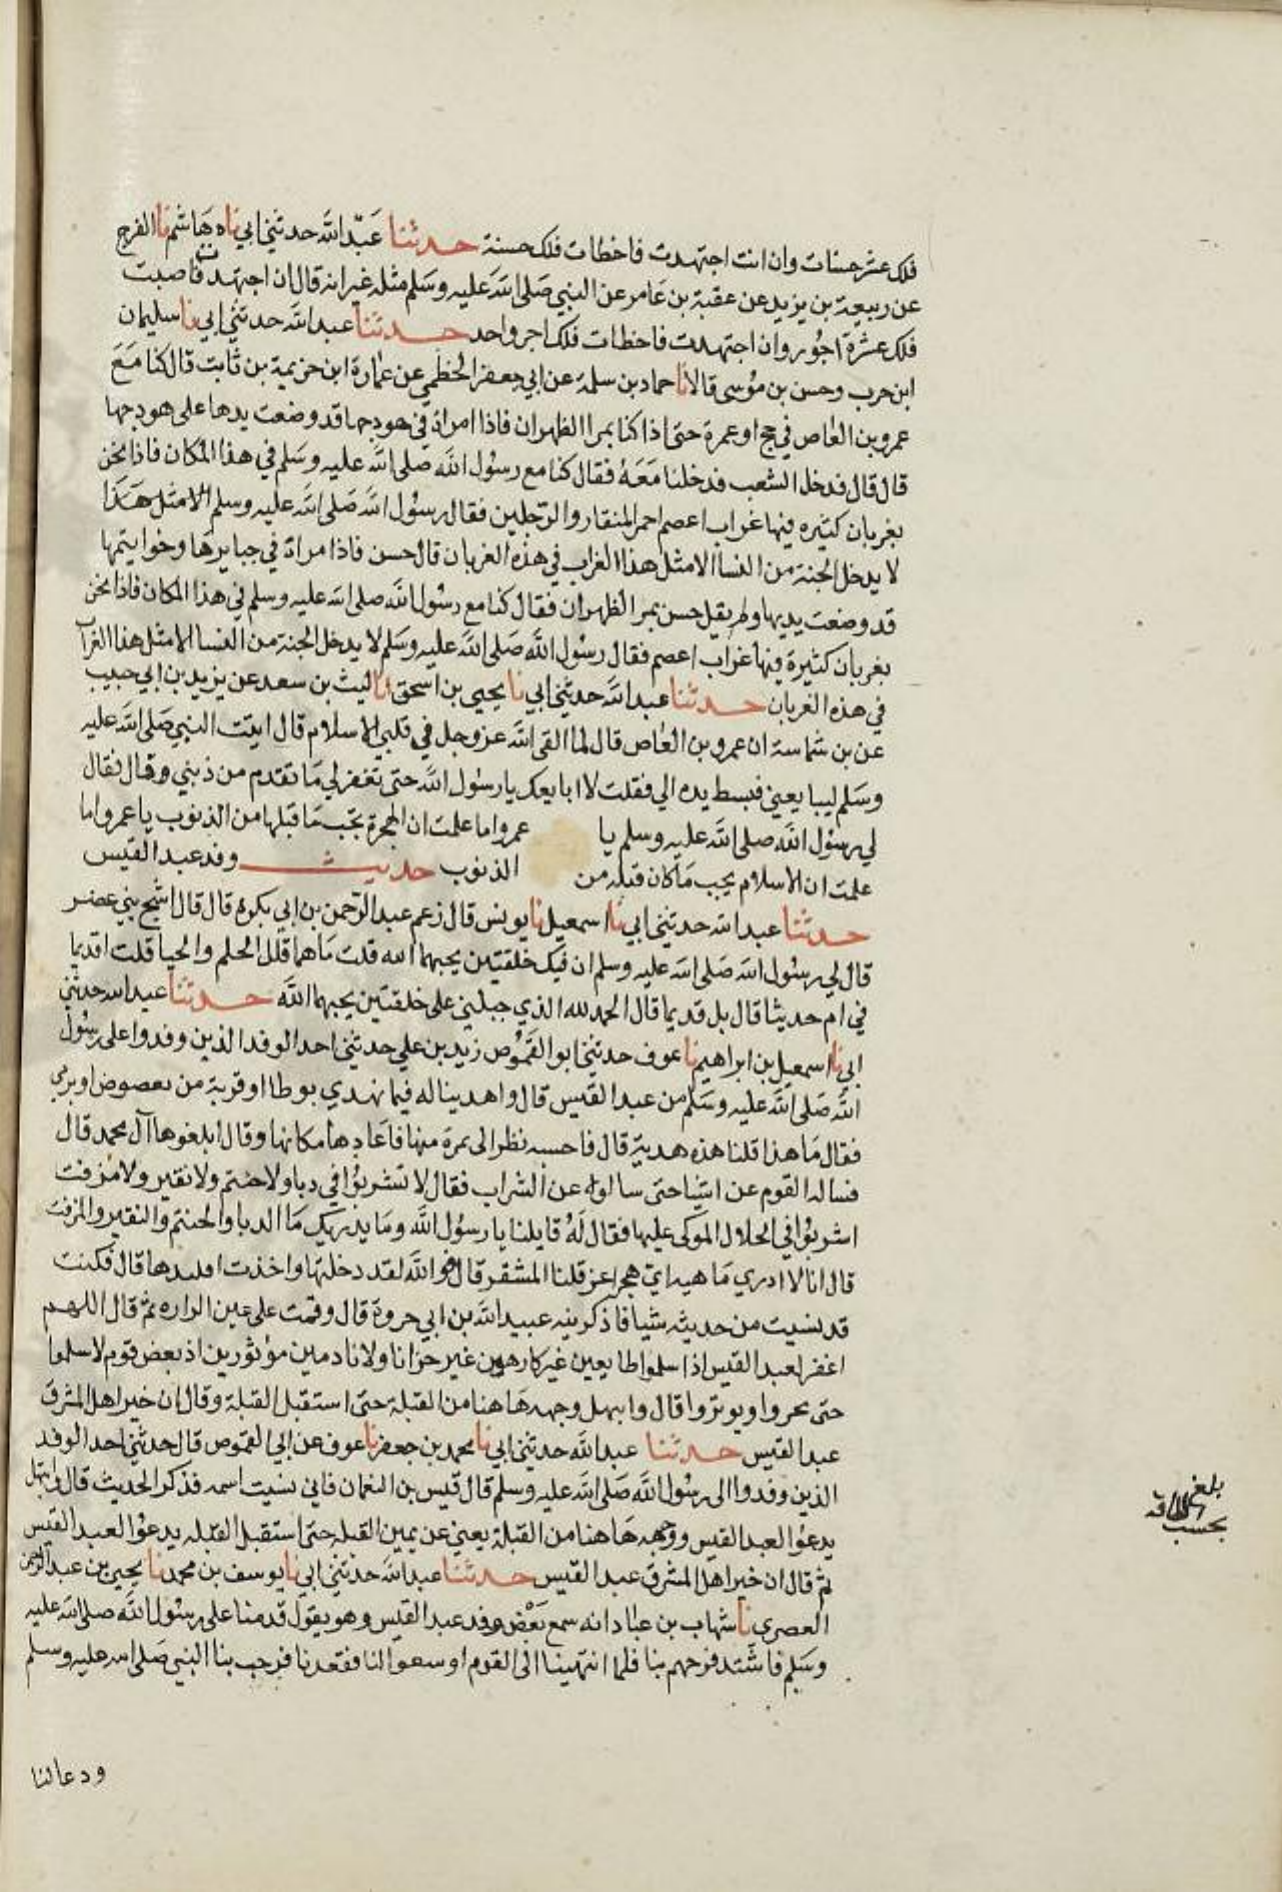 فلك عشر حسنات وان انت اجتهدت فاخطات فلك حسنة حدثنا عبد الله حدثني ابي نا هاشم نا الفرج
عن ربيعة بن يزيد عن عقبة بن عامر عن النبي صلى الله عليه وسلم مثله غير انه قال ان اجتهدت فاصبت
فلك عشرة اجور وان اجتهدت فاخطات فلك اجر واحد حدثنا عبد الله حدثني ابي نا سليمان
ابن حرب وحسن بن موسى قالا نا حماد بن سلمة عن ابي جعفر الخطمي عن عمارة ابن خزيمة بن ثابت قال كنا مع
عمرو بن العاص في حج او عمرة حتى اذا كنا بمر الظهران فاذا امراة في هودجها قد وضعت يدها على هودجها
قال قال فدخل الشعب فدخلنا معه فقال كنا مع رسول الله صلى الله عليه وسلم في هذا المكان فاذا نحن
بغربان كثيره فيها غراب اعصم احمر المنقار والرجلين فقال رسول الله صلى الله عليه وسلم الا مثل هذا
لا يدخل الجنة من النسا الا مثل هذا الغراب في هذه الغربان قال حسن فاذا مراة في جبايرها وخواتيمها
قد وضعت يديها ولم يقل حسن بمر الظهران فقال كنا مع رسول الله صلى الله عليه وسلم في هذا المكان فاذا نحن
بغربان كثيرة فيها غراب اعصم فقال رسول الله صلى الله عليه وسلم لا يدخل الجنة من النسا الا مثل هذا الغراب
في هذه الغربان حدثنا عبد الله حدثني ابي نا يحيى بن اسحق نا ليث بن سعد عن يزيد بن ابي حبيب
عن بن شماسة ان عمرو بن العاص قال لما القى الله عز وجل في قلبي الاسلام قال اتيت النبي صلى الله عليه
وسلم ليبايعني فبسط يده الي فقلت لا ابايعك يا رسول الله حتى تغفر لي ما تقدم من ذنبي وقال فقال
لي رسول الله صلى الله عليه وسلم يا عمرو اما علمت ان الهجرة تجب ما قبلها من الذنوب يا عمرو اما
علمت ان الاسلام يجب ما كان قبله من الذنوب حديث وفد عبد القيس
حدثنا عبد الله حدثني ابي نا اسمعيل نا يونس قال زعم عبد الرحمن بن ابي بكرة قال قال اشج بني عصر
قال لي رسول الله صلى الله عليه وسلم ان فيك خلقتين يحبهما الله قلت ما هما قال الحلم والحيا قلت اقديما
في ام حديثا قال بل قديما قال الحمد لله الذي جبلني على خلقتين يحبهما الله حدثنا عبد الله حدثني
ابي نا اسمعيل بن ابراهيم نا عوف حدثني ابو القموص زيد بن علي حدثني احد الوفد الذين وفدوا على رسول
الله صلى الله عليه وسلم من عبد القيس قال واهدينا له فيما نهدي نوطا او قربة من تعضوض او برني
فقال ما هذا قلنا هذه هدية قال فاحسبه نظر الى تمرة منها فاعادها مكانها وقال ابلغوها آل محمد قال
فساله القوم عن اشيا حتى سالوه عن الشراب فقال لا تشربوا في دبا ولا حنتم ولا نقير ولا مزفت
اشربوا في الحلال الموكى عليها فقال له قايلنا يا رسول الله وما يدريك ما الدبا والحنتم والنقير والمزفت
قال انا لا ادري ما هيه اي هجر اعز قلنا المشقر قال فوالله لقد دخلتها واخذت اقليدها قال فكنت
قد نسيت من حديثه شيا فاذكرنيه عبيد الله بن ابي جروة قال وقمت على عين الزاره ثم قال اللهم
اغفر لعبد القيس اذ اسلموا طايعين غير كارهين غير خزانا ولا نادمين موتورين اذ بعض قوم لا يسلموا
حتى يخزوا ويوتروا قال وابتهل وجهه هاهنا من القبلة حتى استقبل القبلة وقال ان خير اهل المشرق
عبد القيس حدثنا عبد الله حدثني ابي نا محمد بن جعفر نا عوف عن ابي القموص قال حدثني احد الوفد
الذين وفدوا الى رسول الله صلى الله عليه وسلم قال قيس بن النعمان فاني نسيت اسمه فذكر الحديث قال وابتهل
يدعوا العبد القيس ووجهه هاهنا من القبلة يعني عن يمين القبله حتى استقبل القبله يدعوا لعبد القيس
ثم قال ان خير اهل المشرق عبد القيس حدثنا عبد الله حدثني ابي نا يوسف بن محمد نا يحيى بن عبد الرحمن
العصري نا شهاب بن عباد انه سمع بعض وفد عبد القيس وهو يقول قدمنا على رسول الله صلى الله عليه
وسلم فاشتد فرحهم بنا فلما انتهينا الى القوم اوسعوا لنا فقعدنا فرحب بنا النبي صلى الله عليه وسلم
ودعا لنا
بلغ
بحسب الطاقه